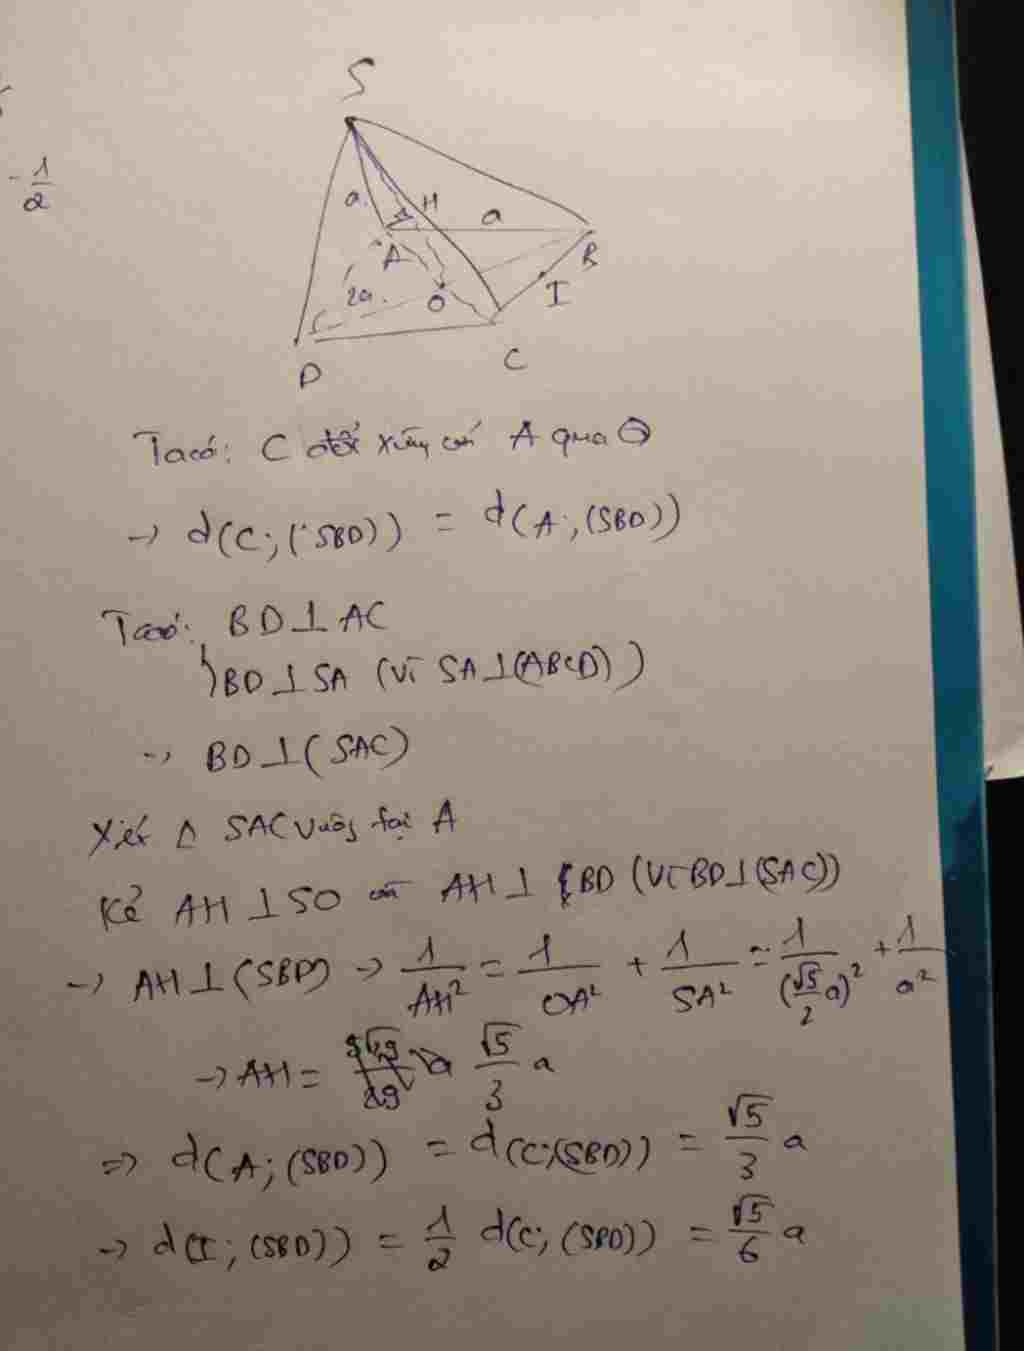 -1/2
S
a
H
a
A
B
2a
O
I
D
C
Ta có: C đối xứng với A qua O
→ d(C; (SBD)) = d(A; (SBD))
Ta có: BD⊥AC
BD⊥SA (vì SA⊥(ABCD))
→ BD⊥(SAC)
Xét Δ SAC vuông tại A
Kẻ AH⊥SO AH⊥BD (vì BD⊥(SAC))
→ AH⊥(SBD) → 1/AH² = 1/OA² + 1/SA² = 1/(√5/2 a)² + 1/a²
→ AH = √5/3 a
⇒ d(A; (SBD)) = d(C;(SBD)) = √5/3 a
→ d(I; (SBD)) = 1/2 d(C; (SBD)) = √5/6 a